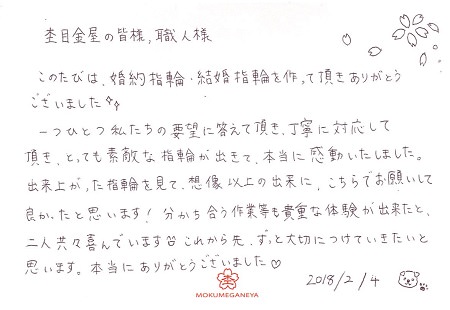 杢目金屋の皆様,職人様
このたびは、婚約指輪・結婚指輪を作って頂きありがとう
ございました
一つひとつ私たちの要望に答えて頂き、丁寧に対応して
頂き、とっても素敵な指輪が出きて、本当に感動いたしました。
出来上がった指輪を見て、想像以上の出来に、こちらでお願いして
良かったと思います! 分かち合う作業等も貴重な体験が出来たと、
二人共々喜んでいます♡これから先、ずっと大切につけていきたいと
思います。本当にありがとうございました♡
2018/2/4
MOKUMEGANEYA